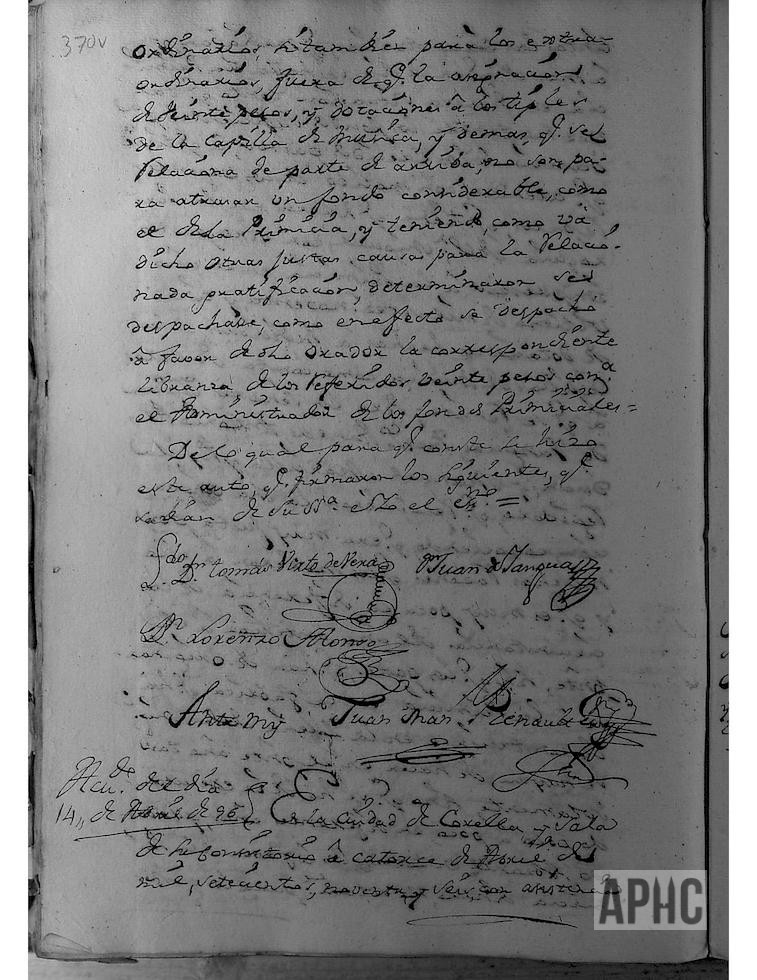 370v
ordinarios, si tambien para los extra-
ordinarios, fuera de q.e la asignacion
de veinte pesos, y dotaciones â los tiples
de la capilla de musica, y demas, q.e se
relaciona de parte de arriba, no son pa-
ra atrasar un fondo considerable, como
el de la Primicia, y teniendo, como va
dicho otras justas causas para la relacio-
nada gratificacion, determinaron se
despachase, como en efecto se despachó
â favor de dho orador la correspondiente
libranza de los referidos veinte pesos con.a
el Administrador de los fondos Primiciales =
De lo qual para q.e conste se hizo
este auto, q.e firmaron los siguientes, q.e
de su ss.a è Yo el ss.no =
D.n Tomás Virto de Vera
D.n Juan de
D.n Lorenzo Alonso
Ante my Juan Man.l Renault
Acu.do del dia
14,, de Abril de 96
En la Ciudad de Corella y Sala
de su Consistorio â catorce de Abril de
mil, setecientos, noventa, y seis, con asistencia
APHC